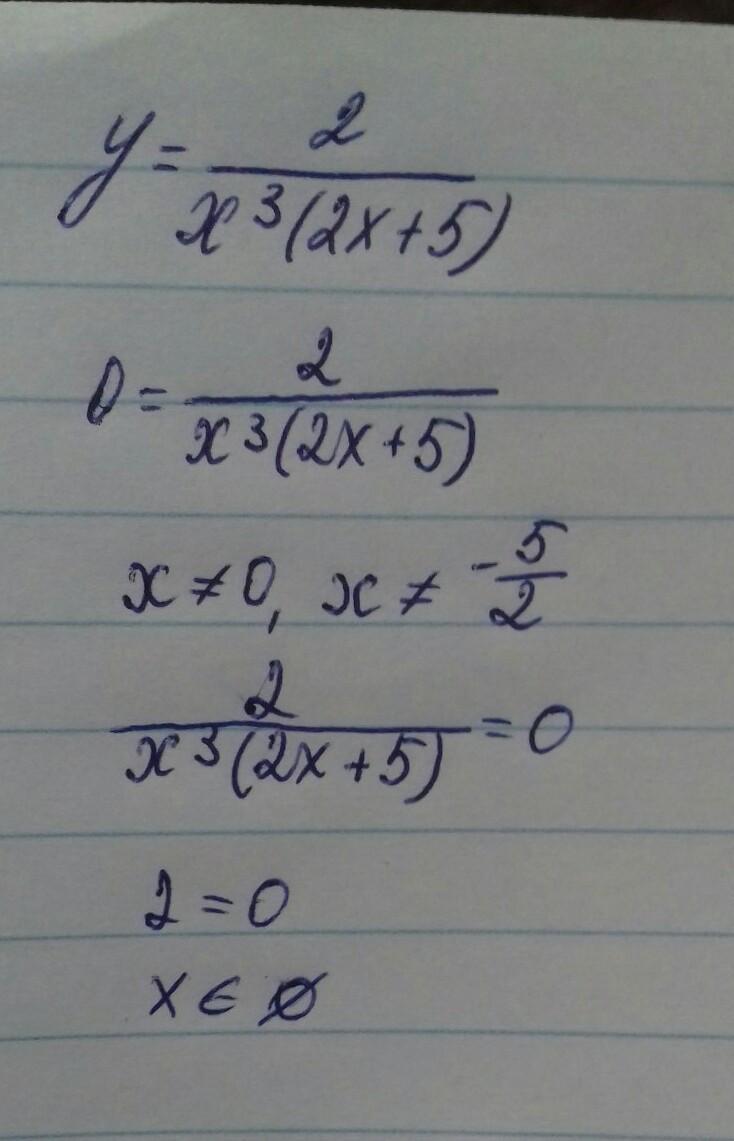 y = 2/(x³(2x+5))
0 = 2/(x³(2x+5))
x ≠ 0, x ≠ -5/2
2/(x³(2x+5)) = 0
2 = 0
x ∈ ∅